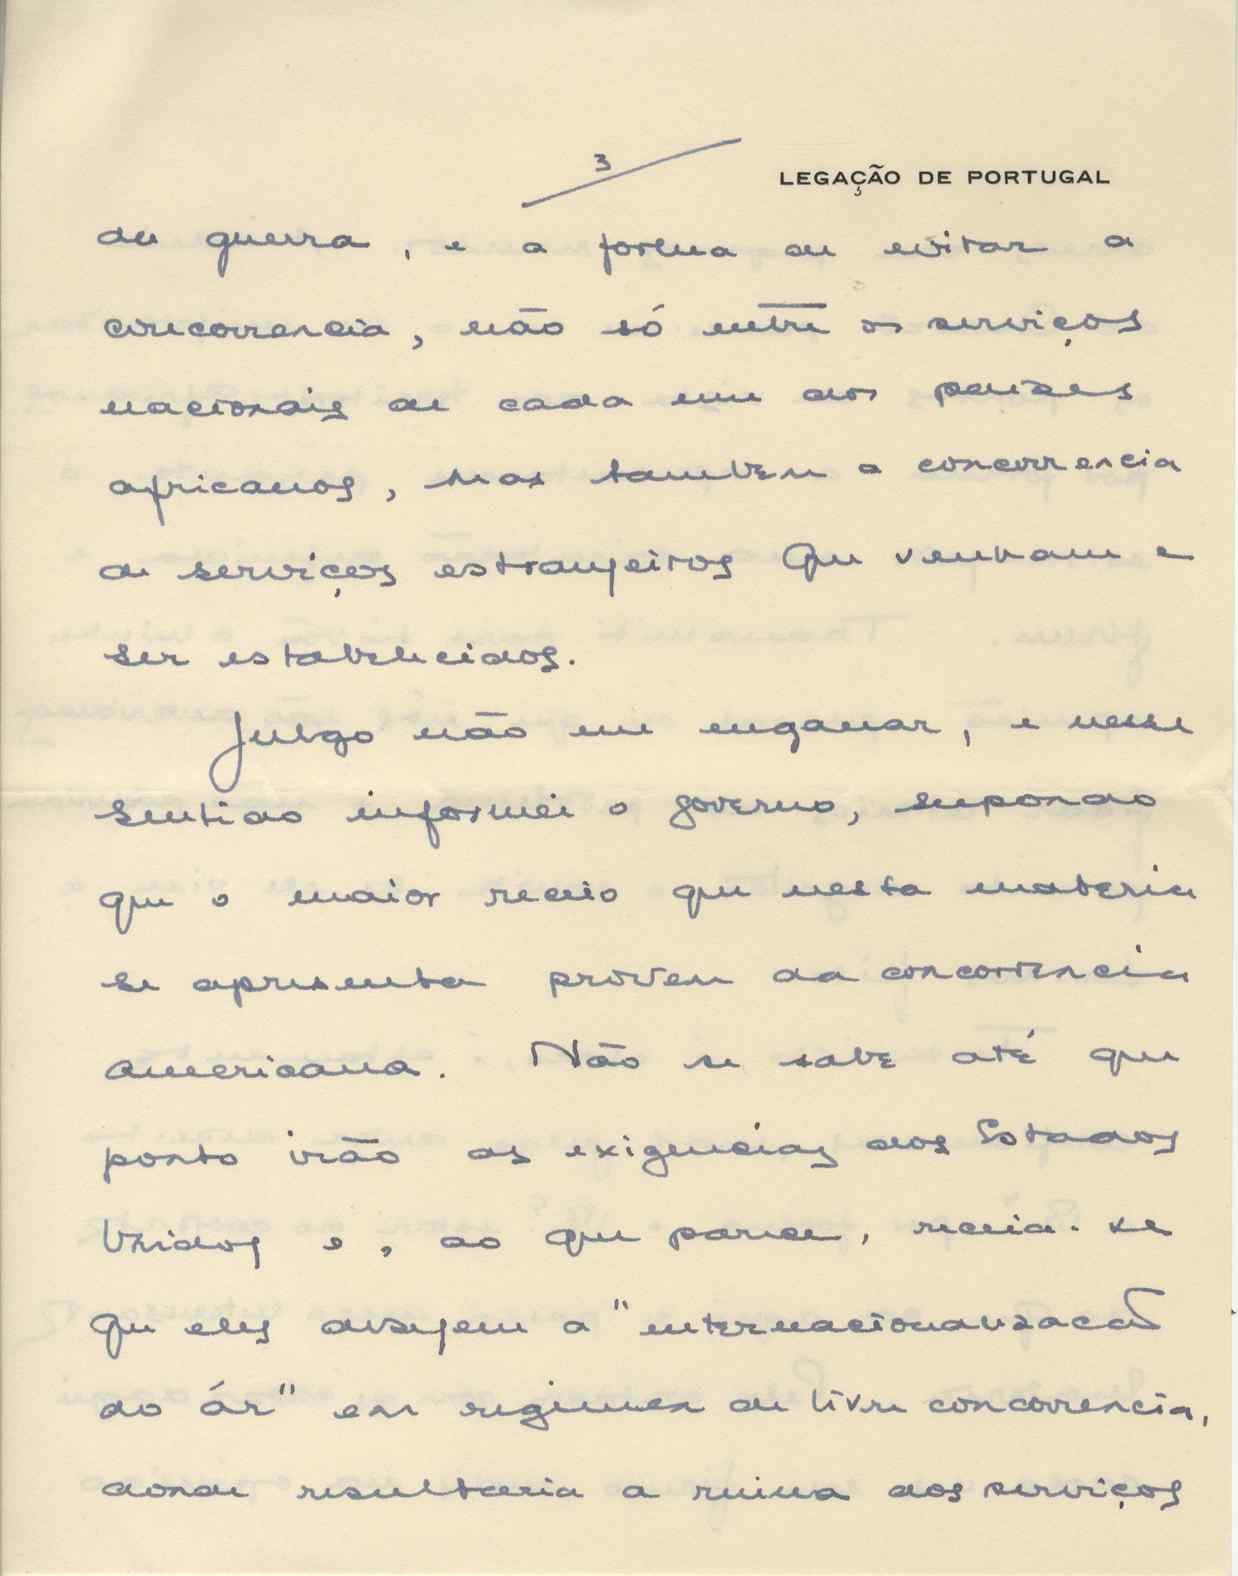 3
LEGAÇÃO DE PORTUGAL
de guerra, e a forma de evitar a
concorrencia, não só entre os serviços
nacionais de cada um dos paizes
africanos, mas tambem a concorrencia
de serviços estranjeiros que venham a
ser estabelecidos.
Julgo não me enganar, e nesse
sentido informei o governo, supondo
que o maior receio que nesta materia
se apresenta provem da concorrencia
americana. Não se sabe até que
ponto irão as exigencias dos Estados
Unidos e, ao que parece, receia-se
que eles desejem a "internacionalisacão
do ár" em regimen de livre concorrencia,
donde resultaria a ruina dos serviços